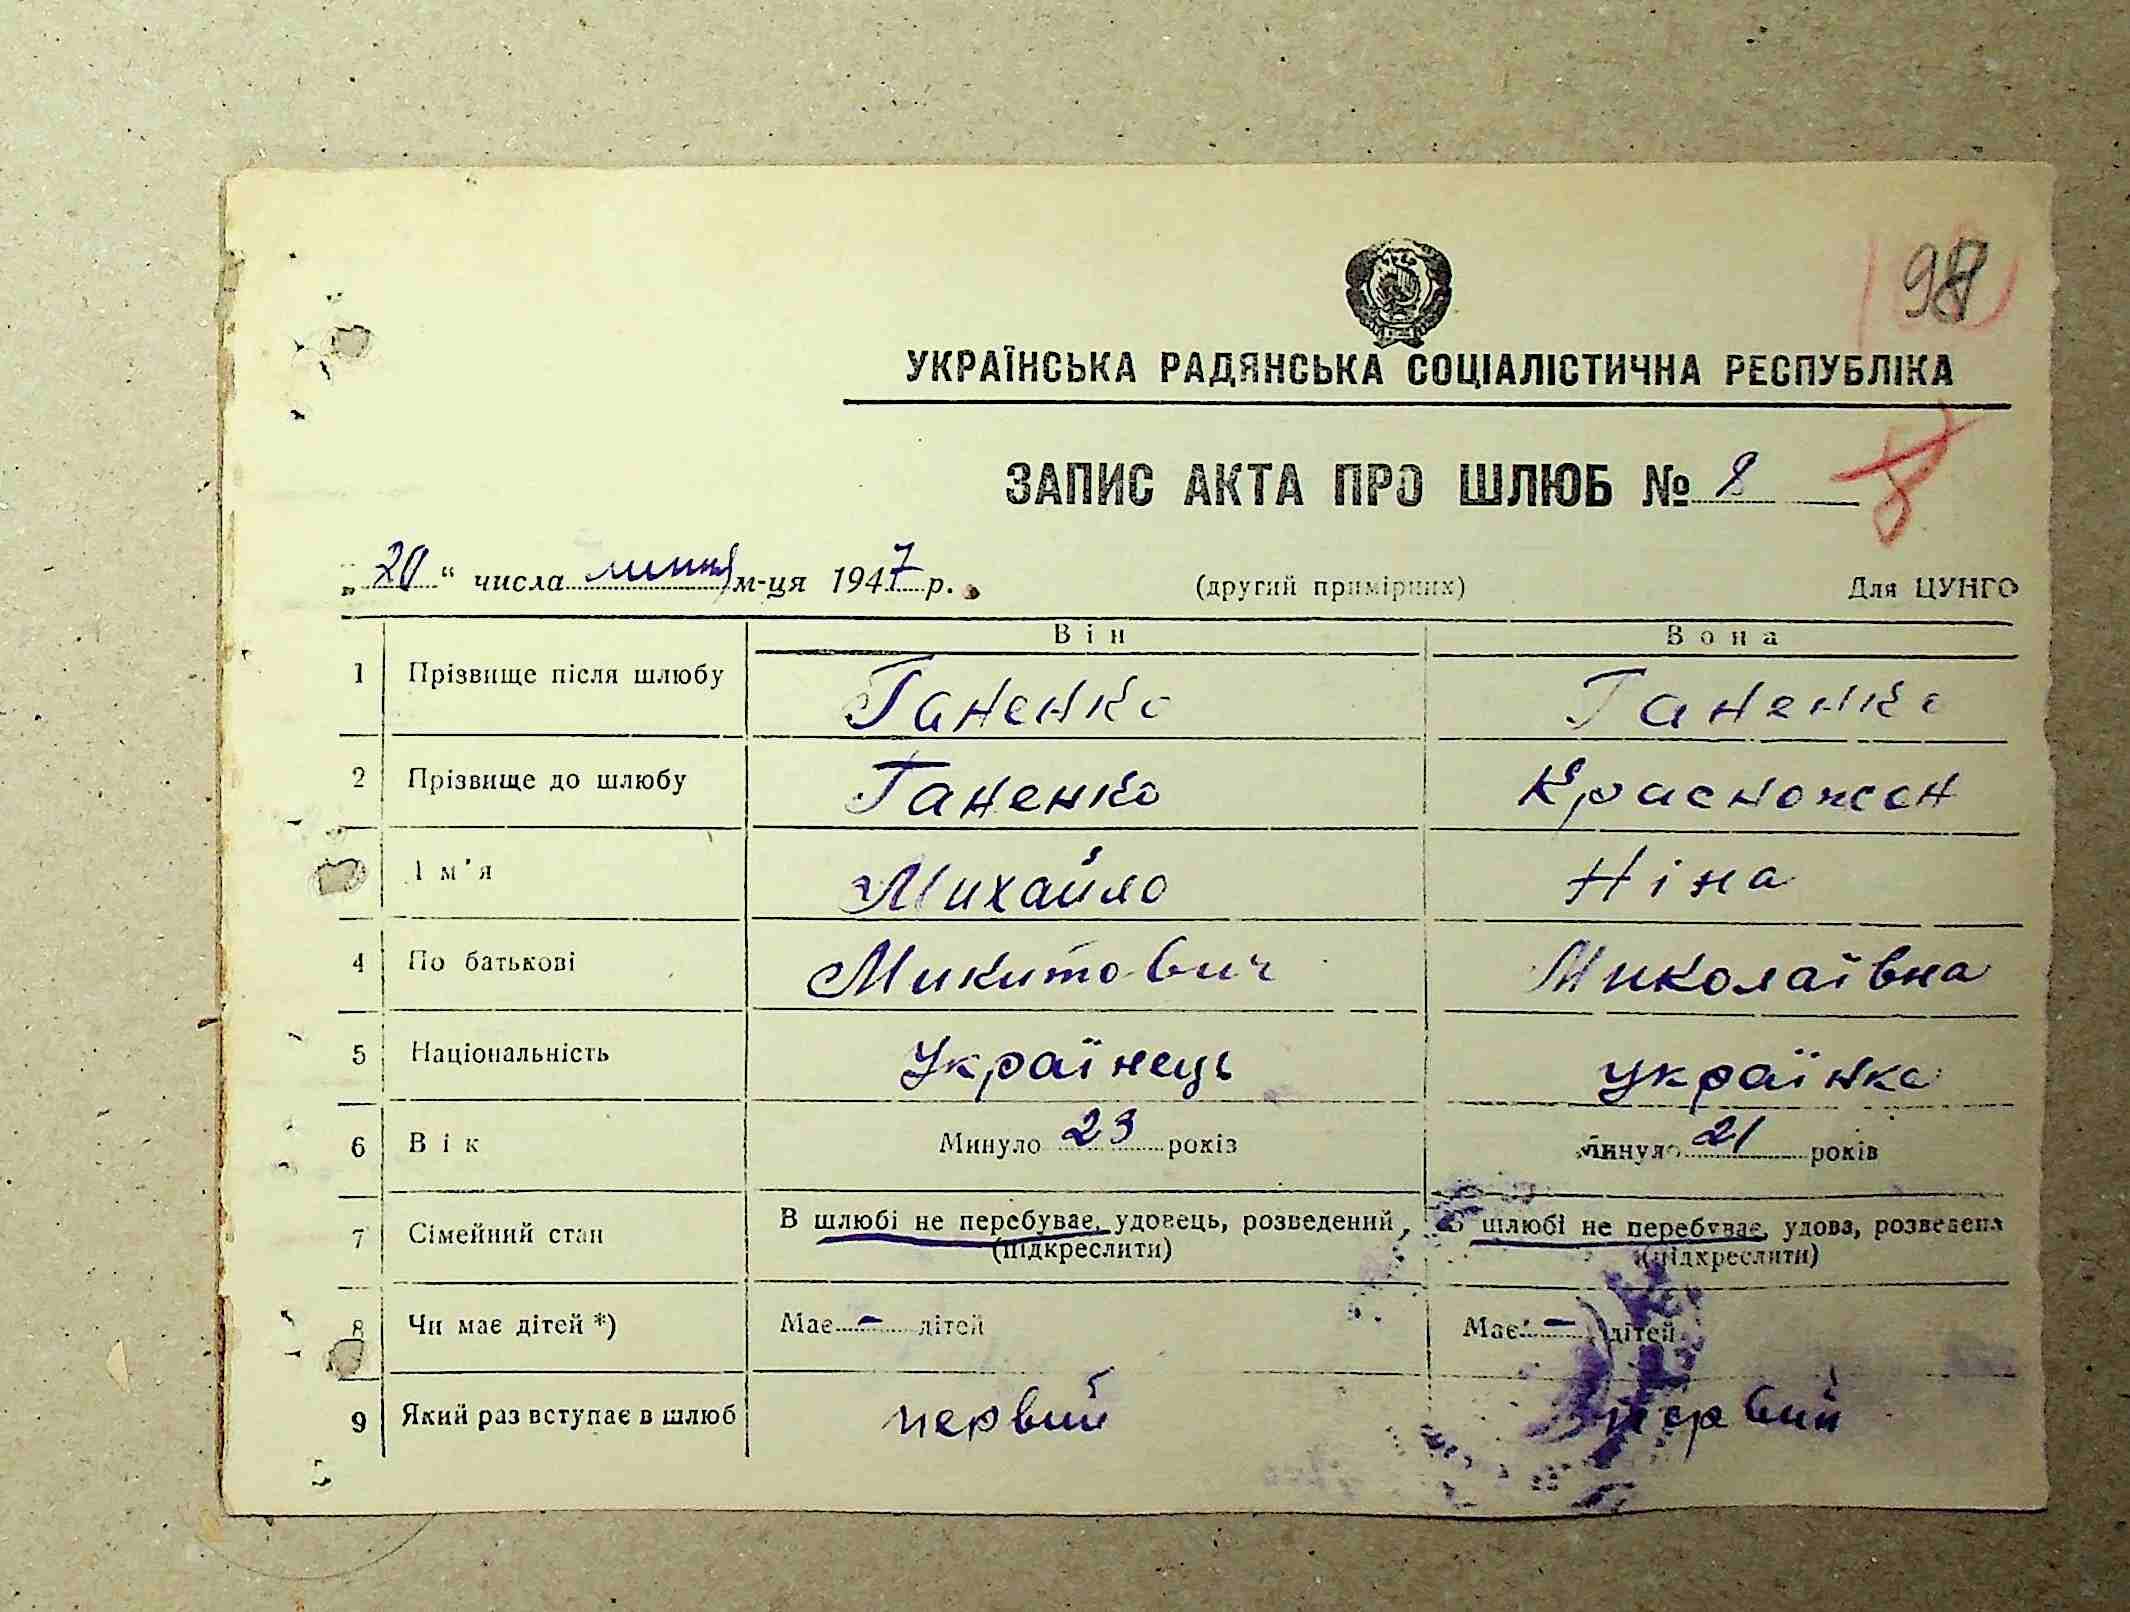 98
УКРАЇНСЬКА РАДЯНСЬКА СОЦІАЛІСТИЧНА РЕСПУБЛІКА
ЗАПИС АКТА ПРО ШЛЮБ № 8
8
„20“ числа липня м-ця 1947 р. (другий примірник) Для ЦУНГО
Він Вона
1 Прізвище після шлюбу Ганенко Ганенко
2 Прізвище до шлюбу Ганенко Красножон
Ім'я Михайло Ніна
4 По батькові Микитович Миколаївна
5 Національність Українець українка
6 Вік Минуло 23 років Минуло 21 років
7 Сімейний стан В шлюбі не перебуває, удовець, розведений, В шлюбі не перебуває, удова, розведена
(підкреслити) (підкреслити)
8 Чи має дітей *) Має - дітей Має - дітей
9 Який раз вступає в шлюб первий первий